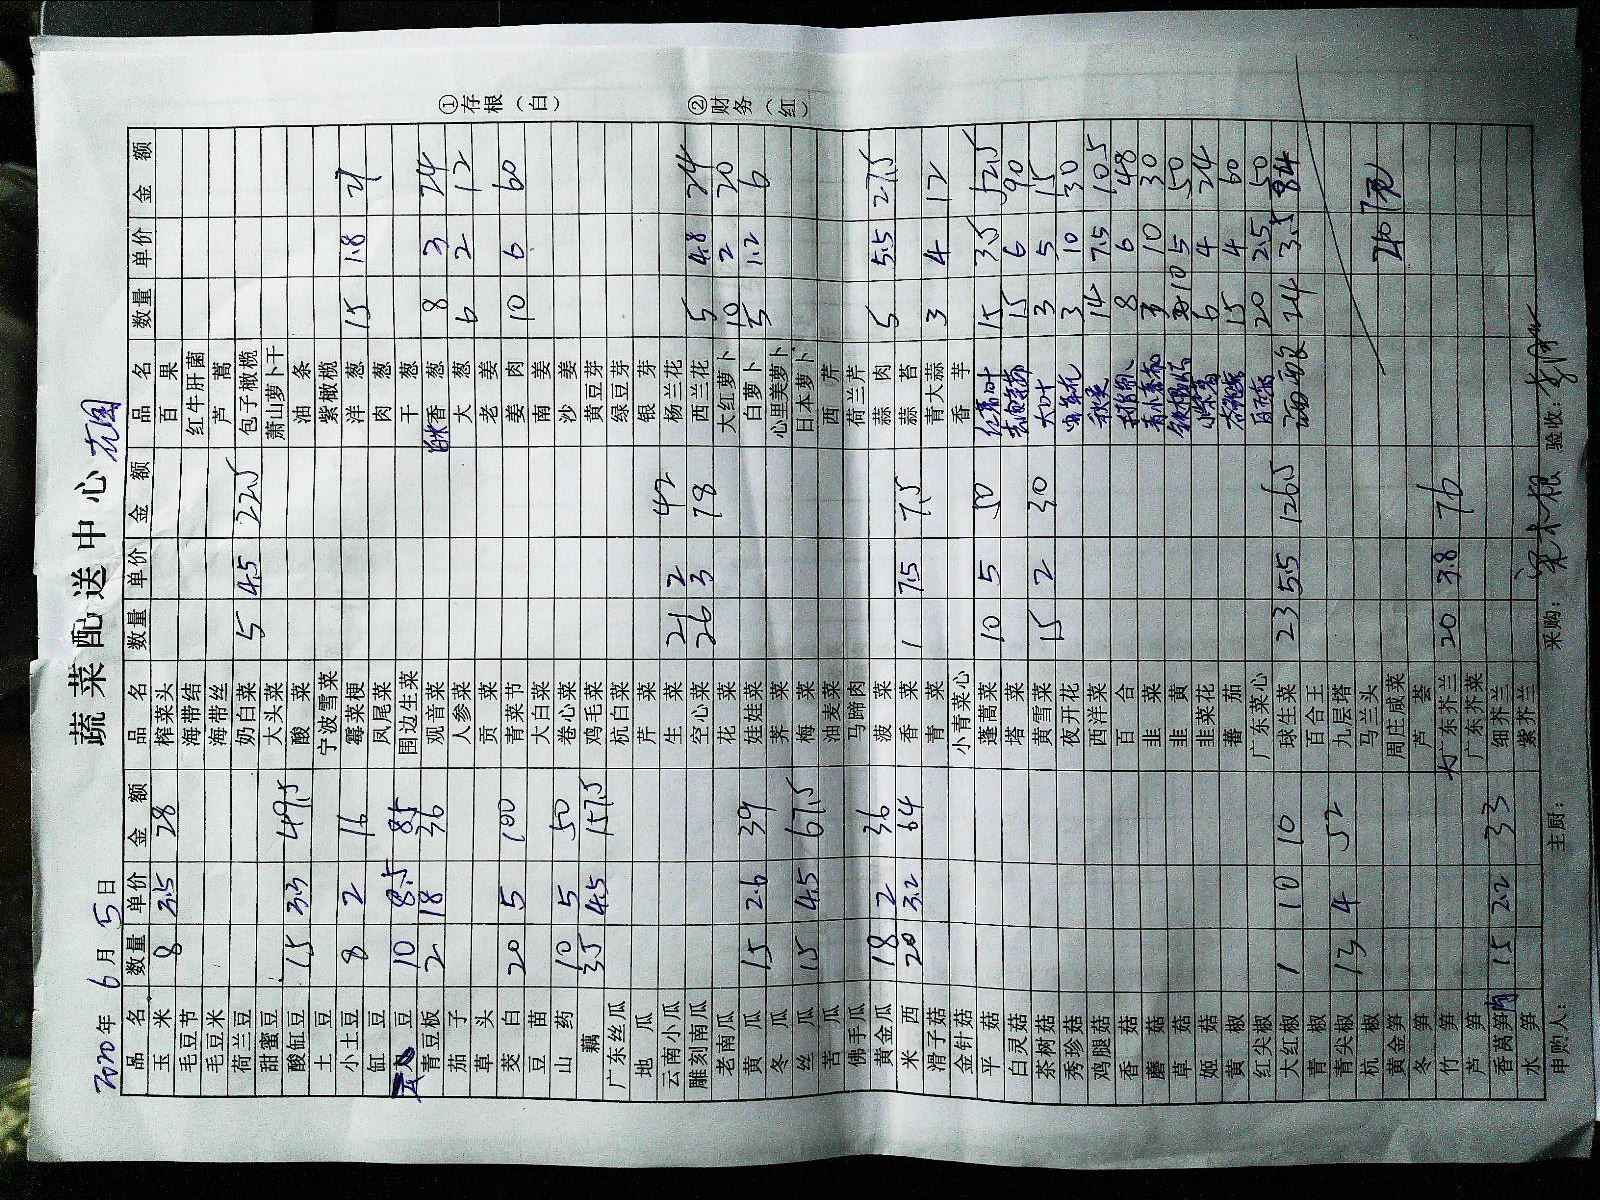 蔬菜配送中心
2020年 6月 5日
品名 数量 单价 金额 品名 数量 单价 金额 品名 数量 单价 金额
玉米 8 3.5 28 榨菜头 百果
毛豆节 海带结 红牛肝菌
毛豆米 海带丝 芦蒿
荷兰豆 奶白菜 5 4.5 22.5 包子橄榄
甜蜜豆 大头菜 萧山萝卜干
酸缸豆 15 3.3 49.5 酸菜 油条
土豆 宁波雪菜 紫橄榄
小土豆 8 2 16 霉菜梗 洋葱 15 1.8 27
缸豆 凤尾菜 肉葱
豆 10 8.5 85 围边生菜 干葱
青豆板 2 18 36 观音菜 香葱 8 3 24
茄子 人参菜 大葱 6 2 12
草头 贡菜 老姜
茭白 20 5 100 青菜节 姜肉 10 6 60
豆苗 大白菜 南姜
山药 10 5 50 卷心菜 沙姜
藕 35 4.5 157.5 鸡毛菜 黄豆芽
广东丝瓜 杭白菜 绿豆芽
地瓜 芹菜 银芽
云南小瓜 生菜 21 2 42 杨兰花
雕刻南瓜 空心菜 26 3 78 西兰花 5 4.8 24
老南瓜 花菜 大红萝卜 10 2 20
黄瓜 15 2.6 39 娃娃菜 白萝卜 5 1.2 6
冬瓜 荠菜 心里美萝卜
丝瓜 15 4.5 67.5 梅菜 日本萝卜
苦瓜 油麦菜 西芹
佛手瓜 马蹄肉 荷兰芹
黄金瓜 18 2 36 菠菜 蒜肉 5 5.5 27.5
米西 20 3.2 64 香菜 1 7.5 7.5 蒜苔
滑子菇 青菜 青大蒜 3 4 12
金针菇 小青菜心 香芋
平菇 蓬蒿菜 10 5 50 红薯叶 15 3.5 52.5
白灵菇 塔菜 15 6 90
茶树菇 黄雪菜 15 2 30 大叶 3 5 15
秀珍菇 夜开花 3 10 30
鸡腿菇 西洋菜 秋葵 14 7.5 105
香菇 百合 8 6 48
蘑菇 韭菜 3 10 30
草菇 韭黄 10 5 50
姬菇 韭菜花 6 4 24
黄椒 蕃茄 15 4 60
红尖椒 广东菜心 20 2.5 50
大红椒 1 10 10 球生菜 23 5.5 126.5 24 3.5 84
青椒 百合王
青尖椒 13 4 52 九层塔
杭椒 马兰头
黄金笋 周庄咸菜
冬笋 芦荟
竹笋 广东芥兰 20 3.8 76
芦笋 广东芥菜
香莴笋肉 15 2.2 33 细芥兰
水笋 紫芥兰
申购人： 主厨： 采购： 验收：
①存根（白）
②财务（红）